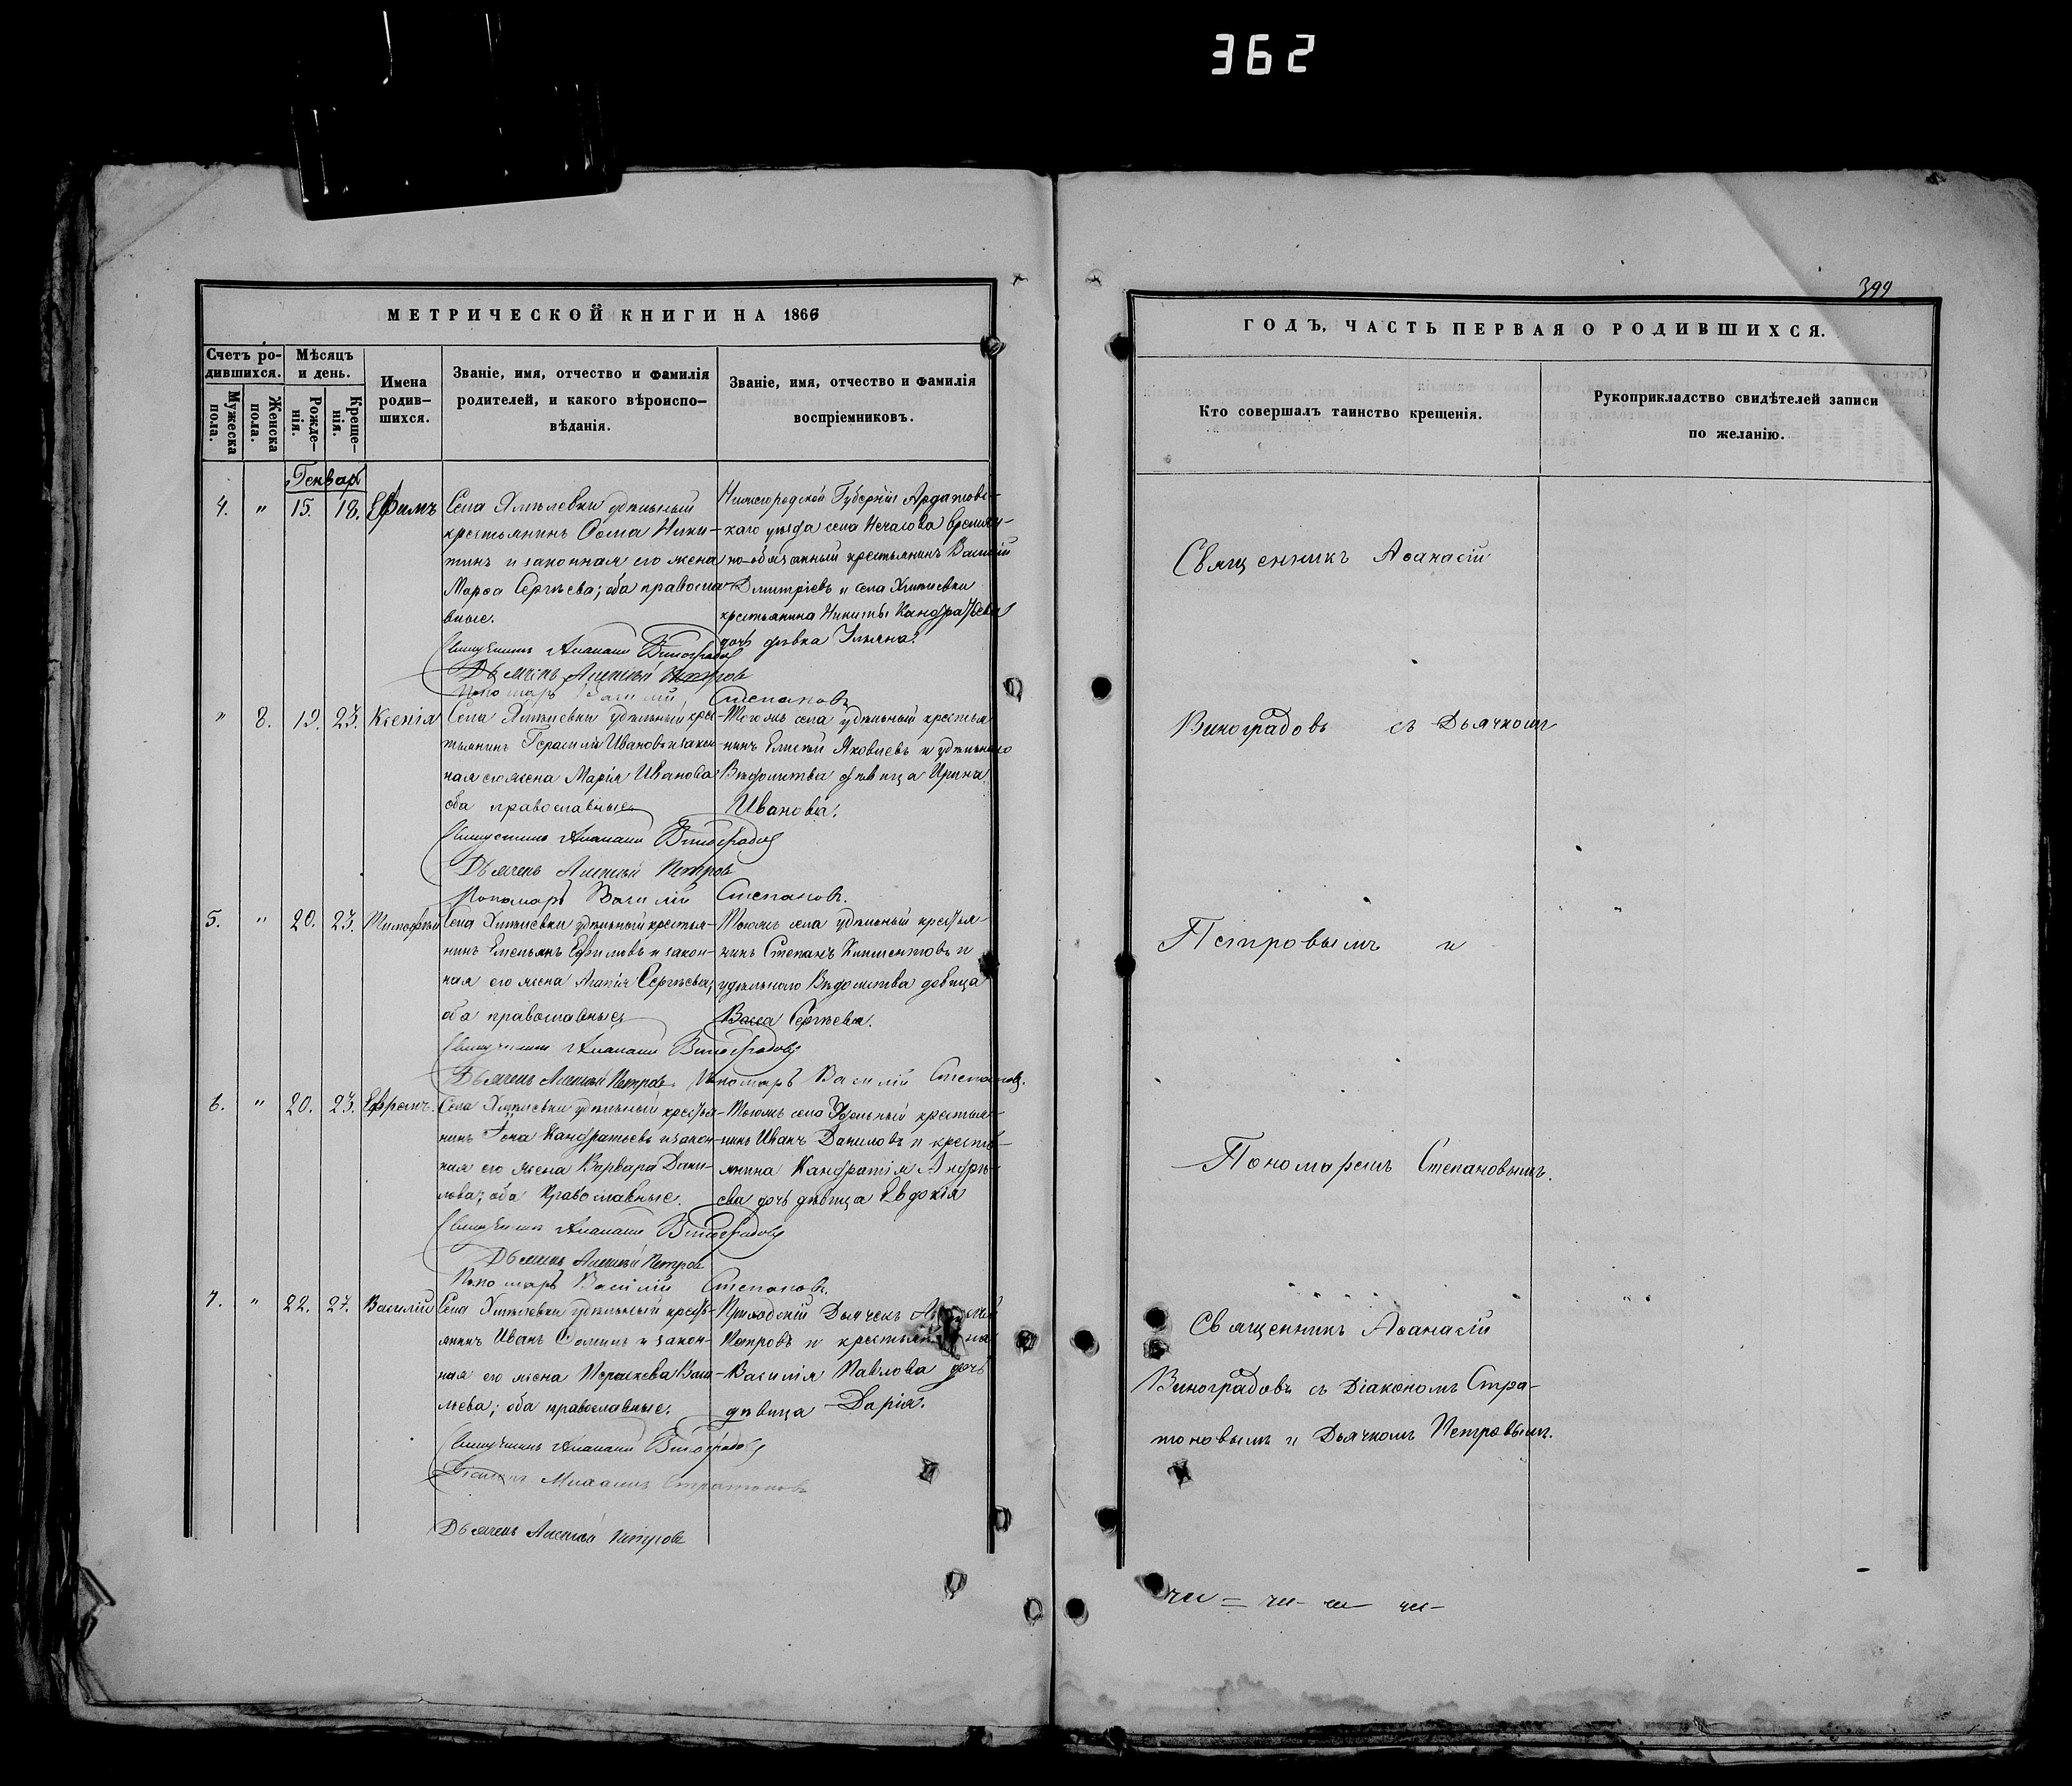 362
399
МЕТРИЧЕСКОЙ КНИГИ НА 1866
Счетъ ро-
дившихся.
Мѣсяцъ
и день.
Мужеска
пола.
Женска
пола.
Рожде-
нія.
Креще-
нія.
Имена
родив-
шихся.
Званіе, имя, отчество и фамилія
родителей, и какого вѣроиспо-
вѣданія.
Званіе, имя, отчество и фамилія
воспріемниковъ.
Генварь
4. " 15. 18. Ефимъ
Села Хмѣлевки удѣльный
крестьянинъ Ѳома Ники-
тинъ и законная его жена
Марѳа Сергѣева; оба правосла-
вные.
Священникъ Аѳанасій Виноградовъ
Дьячекъ Алексѣй Петровъ
Пономарь Василій Степановъ
Нижегородской Губерніи Ардатовс-
каго уѣзда села Нечаева времен-
но-обязанный крестьянинъ Василій
Дмитріевъ и села Хмѣлевки
крестьянина Никиты Кандратьева
дочь дѣвка Ульяна.
" 8. 19. 23. Ксенія
Села Хмѣлевки удѣльный крес-
тьянинъ Герасимъ Ивановъ и закон-
ная его жена Марія Иванова
оба православные
Священникъ Аѳанасій Виноградовъ
Дьячекъ Алексѣй Петровъ
Пономарь Василій Степановъ.
Тогожъ села удѣльный крестья-
нинъ Елисей Яковлевъ и удѣльнаго
Вѣдомства дѣвица Ирина
Иванова.
5. " 20. 23. Тимофей
Села Хмѣлевки удѣльный крестья-
нинъ Емельянъ Ефимовъ и закон-
ная его жена Агапія Сергѣева;
оба православные
Священникъ Аѳанасій Виноградовъ
Дьячекъ Алексѣй Петровъ. Пономарь Василій Степановъ.
Тогожъ села удѣльный крестья-
нинъ Степанъ Климентовъ и
удѣльнаго Вѣдомства девица
Васса Сергѣева.
6. " 20. 23. Ефремъ.
Села Хмѣлевки удѣльный крестья-
нинъ Іона Кандратьевъ и закон-
ная его жена Варвара Дани-
лова; оба Православные.
Священникъ Аѳанасій Виноградовъ
Дьячекъ Алексѣй Петровъ
Пономарь Василій Степановъ.
Тогожъ села Удѣльный крестья-
нинъ Иванъ Даниловъ и кресть-
янина Кандратія Андрѣ-
ева дочь дѣвица Евдокія
7. " 22. 27. Василій
Села Хмѣлевки удѣльный кресть-
янинъ Иванъ Ѳоминъ и закон-
ная его жена Параскева Васи-
льева; оба православные.
Священникъ Аѳанасій Виноградовъ
Діаконъ Михаилъ Стратоновъ
Дьячекъ Алексѣй Петровъ
Приходскій Дьячекъ Алексѣй
Петровъ и крестьянина
Василія Павлова дочь
дѣвица Дарія.
ГОДЪ, ЧАСТЬ ПЕРВАЯ О РОДИВШИХСЯ.
Кто совершалъ таинство крещенія.
Рукоприкладство свидѣтелей записи
по желанію.
Священникъ Аѳанасій
Виноградовъ съ Дьячкомъ
Петровымъ и
Пономаремъ Степановымъ.
Священникъ Аѳанасій
Виноградовъ съ Діакономъ Стра-
тоновымъ и Дьячкомъ Петровымъ.